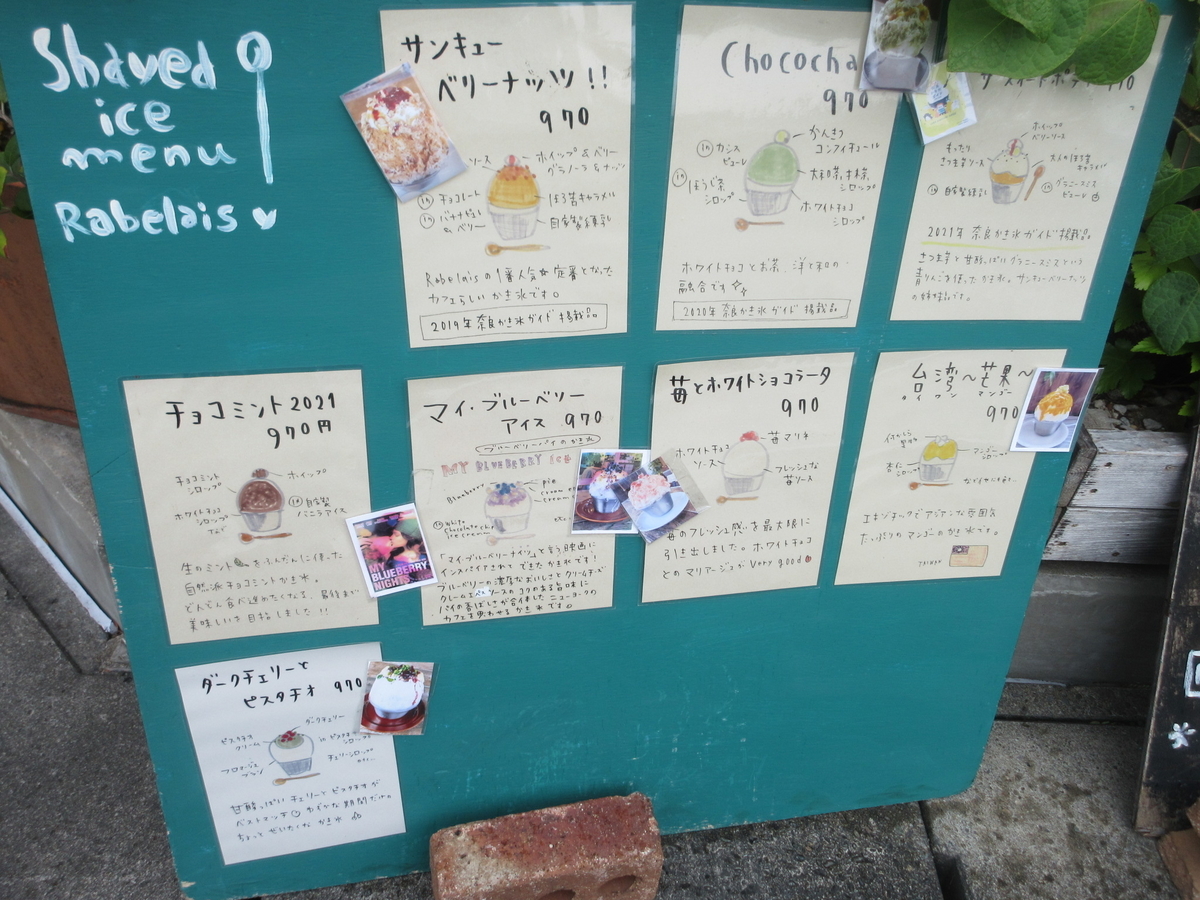 Shaved
ice
menu
Rabelais
サンキュー
ベリーナッツ!!
970
ソース
ホイップ & ベリー
グラノーラ & ナッツ
in チョコレート
ほろ苦キャラメル
in バナナピュレ
& ベリー
自家製練乳
Rabelaisの1番人気 定番となった
カフェらしい かき氷です。
2019年 奈良かき氷ガイド 掲載品
Chococha
970
かんきつ
コンフィチュール
in カシス
ピューレ
in ほうじ茶
シロップ
大和茶 抹茶
シロップ
ホワイトチョコ
シロップ
ホワイトチョコとお茶、洋と和の
融合です
2020年 奈良かき氷ガイド 掲載品
ホイップ
ベリーソース
in 自家製練乳
2021年 奈良かき氷ガイド掲載品
さつま芋と甘酸っぱいグラニースミスという
青りんごを使ったかき氷。サンキューベリーナッツ
の姉妹品です。
チョコミント2021
970円
チョコミント
シロップ
ホイップ
ホワイトチョコ
シロップ
in 自家製
バニラアイス
生のミントをふんだんに使った
自然派チョコミントかき氷。
どんどん食べ進めたくなる、最後まで
美味しいを目指しました!!
マイ・ブルーベリー
アイス 970
ブルーベリーパイのかき氷
MY BLUEBERRY ice
Blueberry
pie
cream
in White
chocolate
ice cream
「マイ・ブルーベリーナイツ」と言う映画に
インスパイアされて できた かき氷です!
ブルーベリーの濃厚なおいしさとクリームチーズ
パイの香ばしさが合体した ニューヨークの
カフェを思わせる かき氷です。
MY
BLUEBERRY
NIGHTS
苺とホワイトショコラータ
970
苺マリネ
ホワイトチョコ
ソース
フレッシュな
苺ソース
苺のフレッシュ感を最大限に
引き出しました。ホワイトチョコ
とのマリアージュが Very good
台湾〜芒果〜
タイワン マンゴー
970
杏仁
シロップ
マンゴー
シロップ
エキゾチックでアジアンな雰囲気
たっぷりの マンゴーのかき氷です。
ダークチェリーと
ピスタチオ 970
ダークチェリー
ピスタチオ
クリーム
in ピスタチオ
シロップ
フロマージュ
ブラン
チェリーシロップ
甘酸っぱい チェリーと ピスタチオが
ベストマッチ わずかな期間だけの。
ちょっと ぜいたくな かき氷